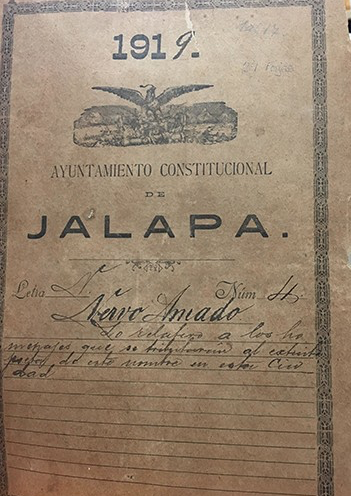 1919.
AYUNTAMIENTO CONSTITUCIONAL
DE
JALAPA.
Letra N. Núm 4.
Nervo Amado
Lo relativo a los ho
menajes que se tributarán al extinto
poeta de este nombre en esta Ciu
dad